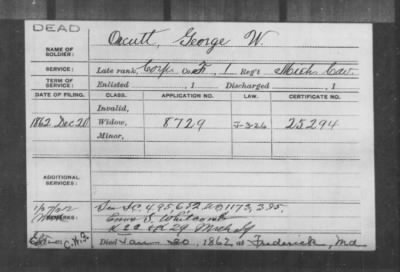 DEAD
NAME OF SOLDIER: Orcutt, George W.
SERVICE: Late rank, Corp Co. F, 1 Reg't Mich. Cav.
TERM OF SERVICE: Enlisted , 1 Discharged , 1
DATE OF FILING. CLASS. APPLICATION NO. LAW. CERTIFICATE NO.
Invalid,
1862 Dec 20 Widow, 8729 25294
Minor,
ADDITIONAL SERVICES:
REMARKS: See
Whitcomb
29 Mich
Died 20, 1862, at Frederick, Md